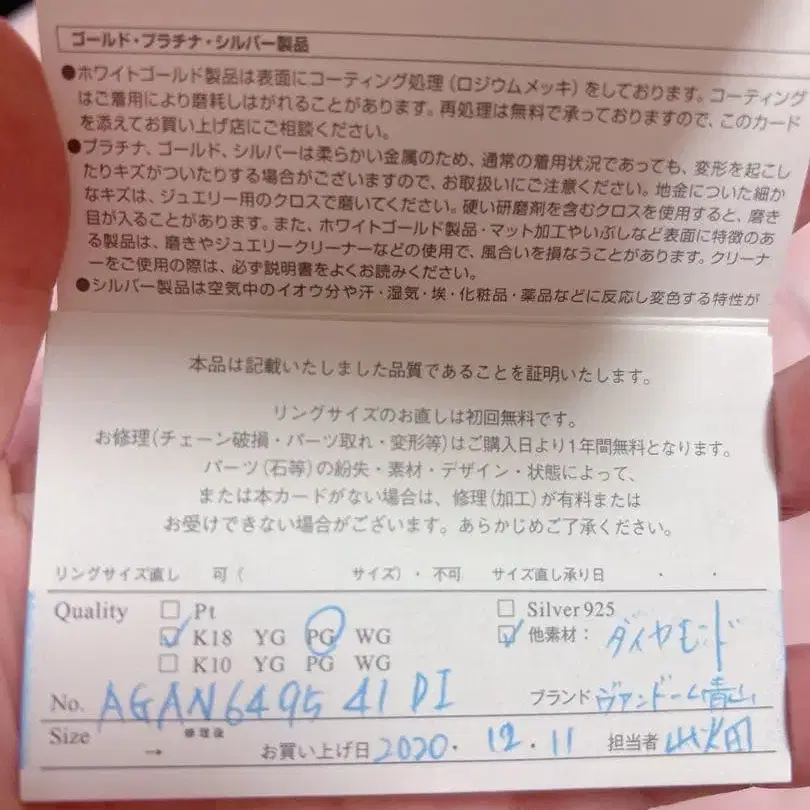 ゴールド・プラチナ・シルバー製品
●ホワイトゴールド製品は表面にコーティング処理(ロジウムメッキ)をしております。コーティング
はご着用により磨耗しはがれることがあります。再処理は無料で承っておりますので、このカード
を添えてお買い上げ店にご相談ください。
●プラチナ、ゴールド、シルバーは柔らかい金属のため、通常の着用状況であっても、変形を起こし
たりキズがついたりする場合がございますので、お取扱いにご注意ください。地金についた細か
なキズは、ジュエリー用のクロスで磨いてください。硬い研磨剤を含むクロスを使用すると、磨き
目が入ることがあります。また、ホワイトゴールド製品・マット加工やいぶしなど表面に特徴のあ
る製品は、磨きやジュエリークリーナーなどの使用で、風合いを損なうことがあります。クリーナ
ーをご使用の際は、必ず説明書をよくお読みください。
●シルバー製品は空気中のイオウ分や汗・湿気・埃・化粧品・薬品などに反応し変色する特性が
本品は記載いたしました品質であることを証明いたします。
リングサイズのお直しは初回無料です。
お修理(チェーン破損・パーツ取れ・変形等)はご購入日より1年間無料となります。
パーツ(石等)の紛失・素材・デザイン・状態によって、
または本カードがない場合は、修理(加工)が有料または
お受けできない場合がございます。あらかじめご了承ください。
リングサイズ直し 可( サイズ)・不可 サイズ直し承り日 ・ ・
Quality □ Pt □ Silver925
☑ K18 YG PG WG ☑ 他素材: ダイヤモンド
□ K10 YG PG WG
No. AGAN6495 41 DI ブランド ヴァンドーム青山
Size → 修理後 お買い上げ日 2020・12・11 担当者